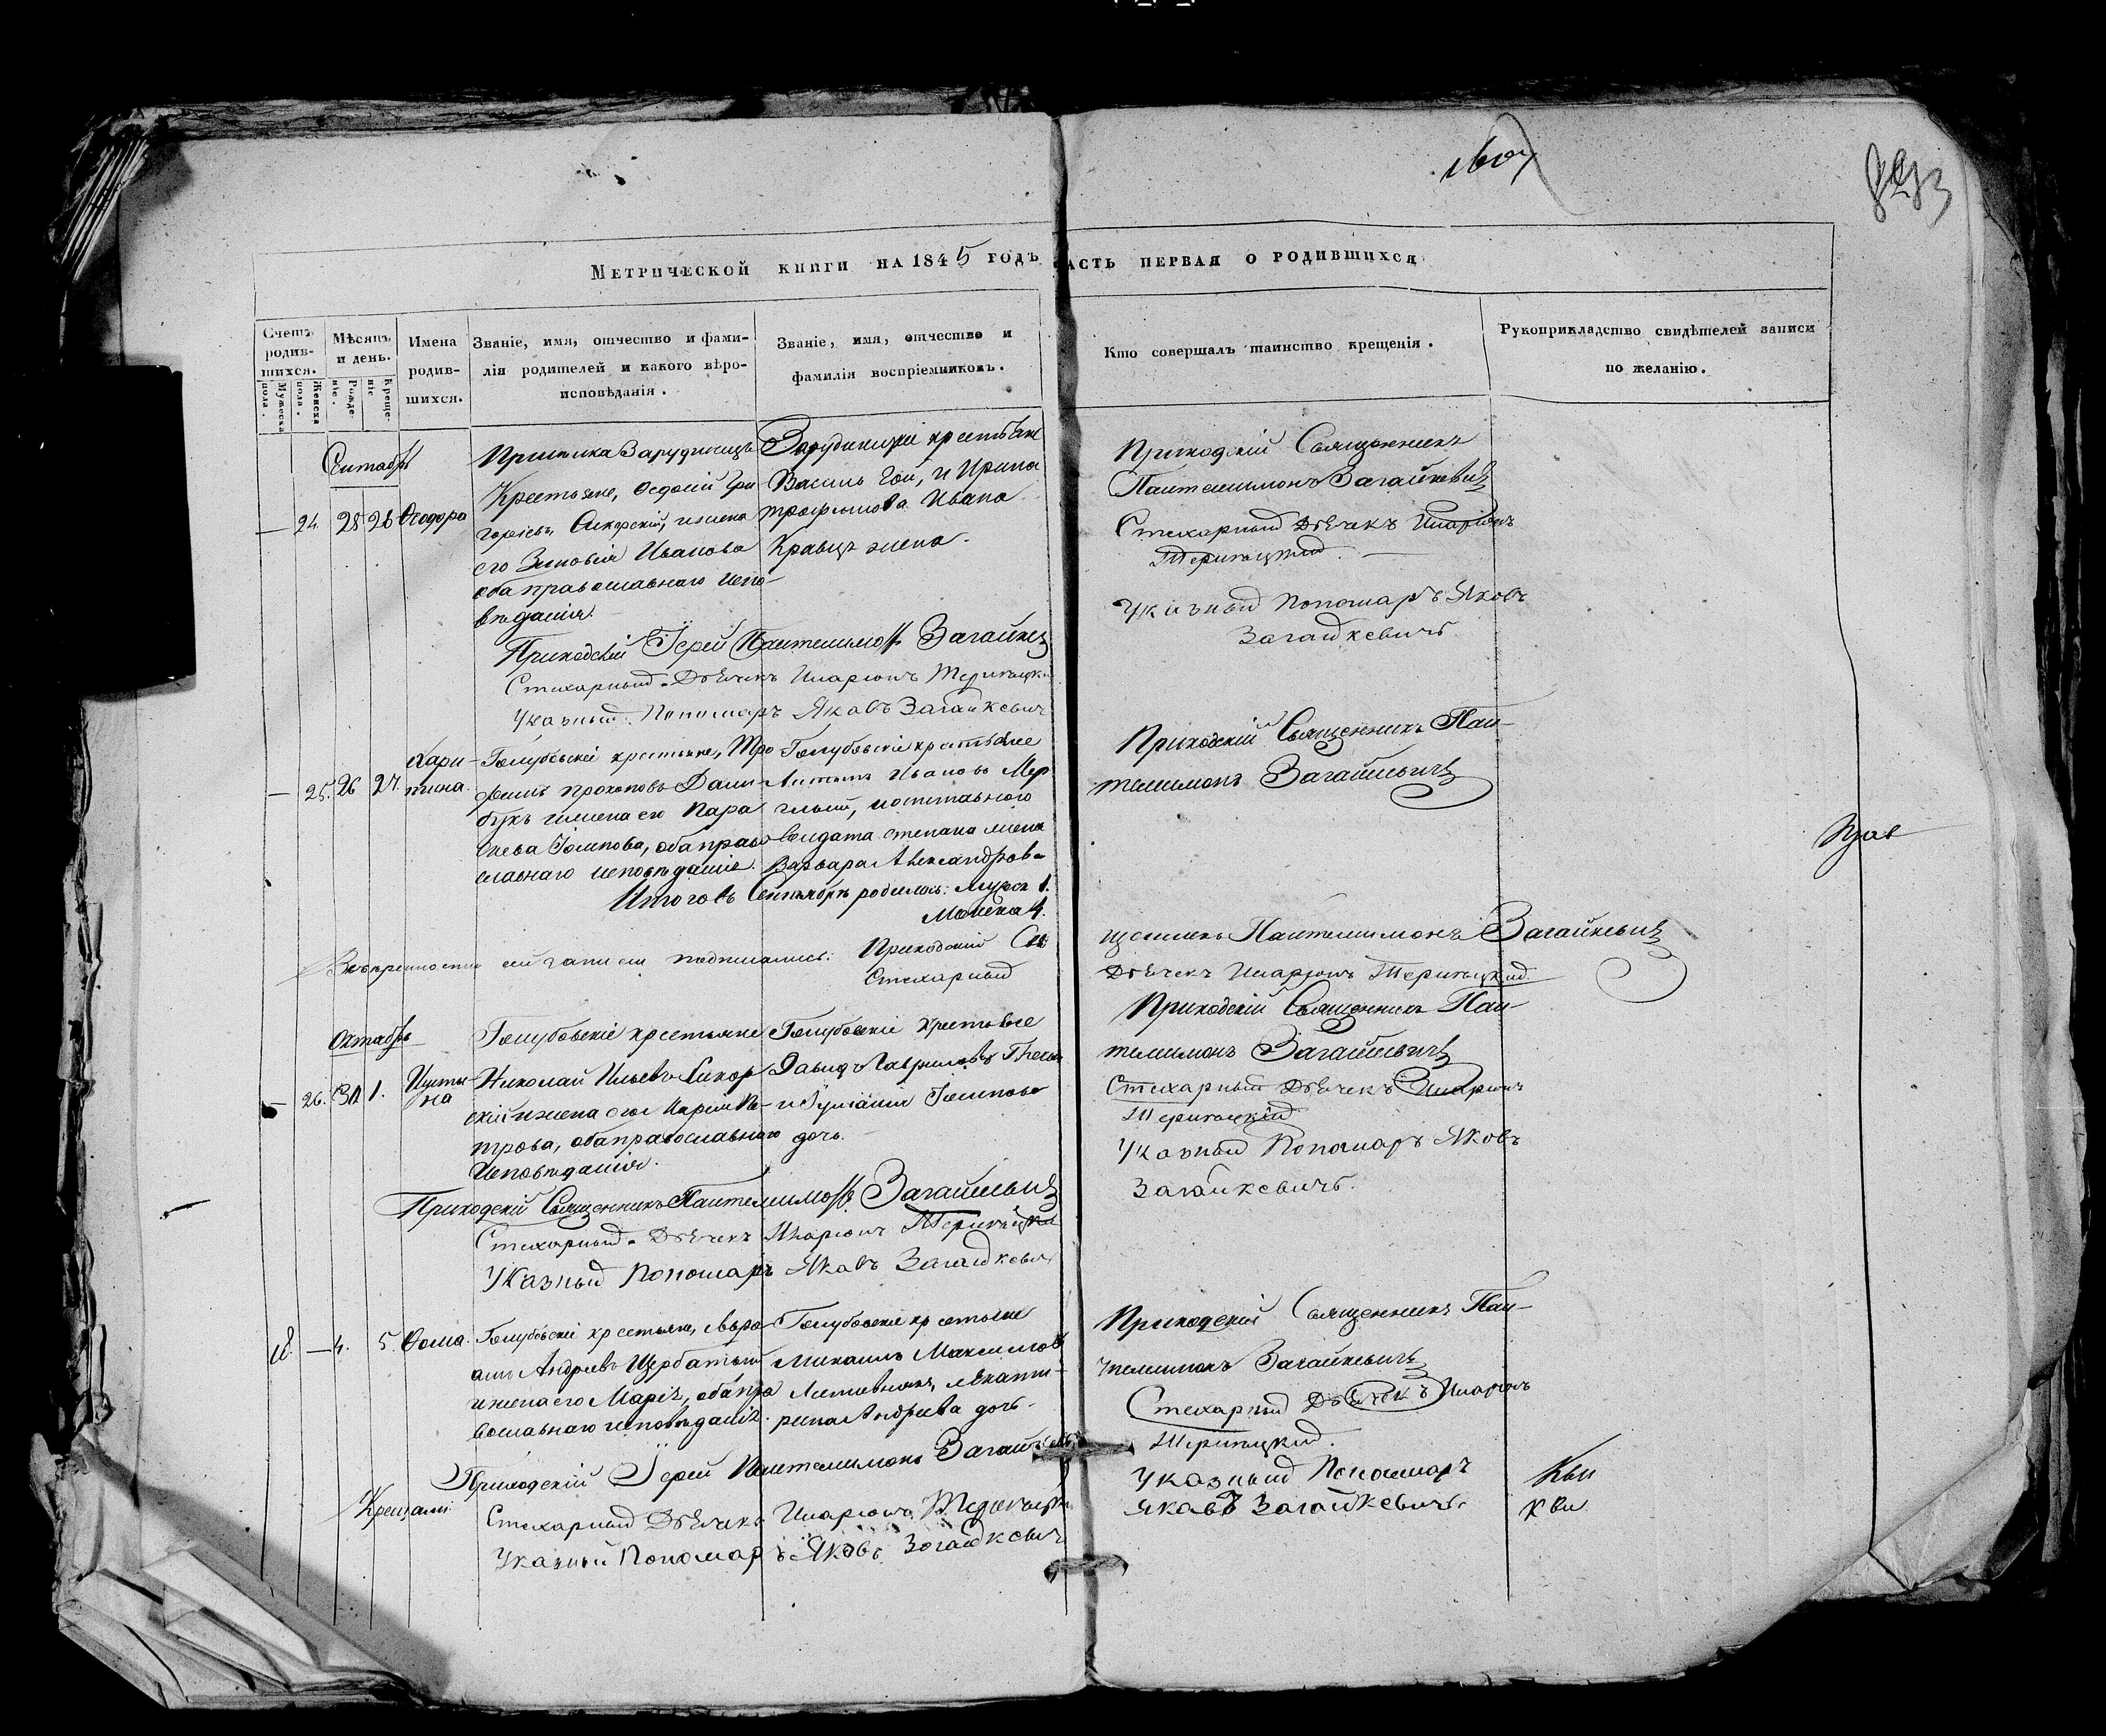 МЕТРИЧЕСКОЙ КНИГИ НА 1845 ГОДЪ
АСТЬ ПЕРВАЯ О РОДИВШИХСЯ
Счетъ родив-шихся.
Мужеска пола.
Женска пола.
Мѣсяцъ и день.
Рожде-ніе.
Креще-ніе
Имена родив-шихся.
Званіе, имя, отчество и фами-
лія родителей и какого вѣро-
исповѣданія.
Званіе, имя, отчество и
фамилія воспріемниковъ.
Кто совершалъ таинство крещенія.
Рукоприкладство свидѣтелей записи
по желанію.
Сентябрь
24. 25 26 Ѳеодора
Крестьяне, Ѳедосій Гри
горіевъ Сикорскій, и жена
его Зиновія Иванова
оба православнаго испо-
вѣданія.
крестьяне
Василь Гои, и Ирина
трофимова Ивана
Кравца жена.
Приходскій Священникъ
Пантелимонъ Загайкевичъ
Стихарный Дьячекъ Иларіонъ
Указный Пономарь Яковъ
Загайкевичъ
Приходскій Іерей Пантелимонъ
Стихарный Дьячекъ Иларіонъ
Указный Пономарь Яковъ Загайкевич
25. 26 27. Хари-
тина.
Голубовскіе крестьяне, Тро
фимъ Прокоповъ
и жена его Пара
скева Іосипова, оба право
славнаго исповѣданія.
Голубовскіе крестьяне
Антипъ Ивановъ
солдата степана жена
Варвара Александрова
Приходскій Священникъ Пан-
телимонъ Загайкевичъ
Итого въ Сентябрѣ родилось: Мужск 1.
Женска 4.
подписались: Приходскій Свя
щенникъ Пантелимонъ Загайкевичъ
Стихарный
Дьячекъ Иларіонъ
Октябрь
26. 30. 1. Иусти-
на
Голубовскіе крестьяне
Николай Ильевъ Сикор
скій и жена его Марія Пе-
трова, оба православнаго
исповѣданія.
Голубовскіе крестьяне
Давидъ Гавриловъ
и Іуліанія Іосипова
дочь.
Приходскій Священникъ Пан-
телимонъ Загайкевичъ
Стихарный Дьячекъ Иларіонъ
Указный Пономарь Яковъ
Загайкевичъ.
Приходскій Священникъ Пантелимонъ Загайкевичъ
Стихарный Дьячекъ Иларіонъ
Указный Пономарь Яковъ Загайкевич
18. — 4. 5. Ѳома.
Голубовскіе крестьяне, Авра
амъ Андреевъ Щербатый
и жена его Марія, оба пра
вославнаго исповѣданія.
Голубовскіе крестьяне
Михаилъ Максимовъ
и Екате-
рина Андреева дочь.
Приходскій Священникъ Пан-
телимонъ Загайкевичъ
Стихарный Дьячекъ Иларіонъ
Указный Пономарь
Яковъ Загайкевичъ.
Приходскій Іерей Пантелимонъ
Стихарный Дьячекъ Иларіонъ
Указный Пономарь Яковъ Загайкевич